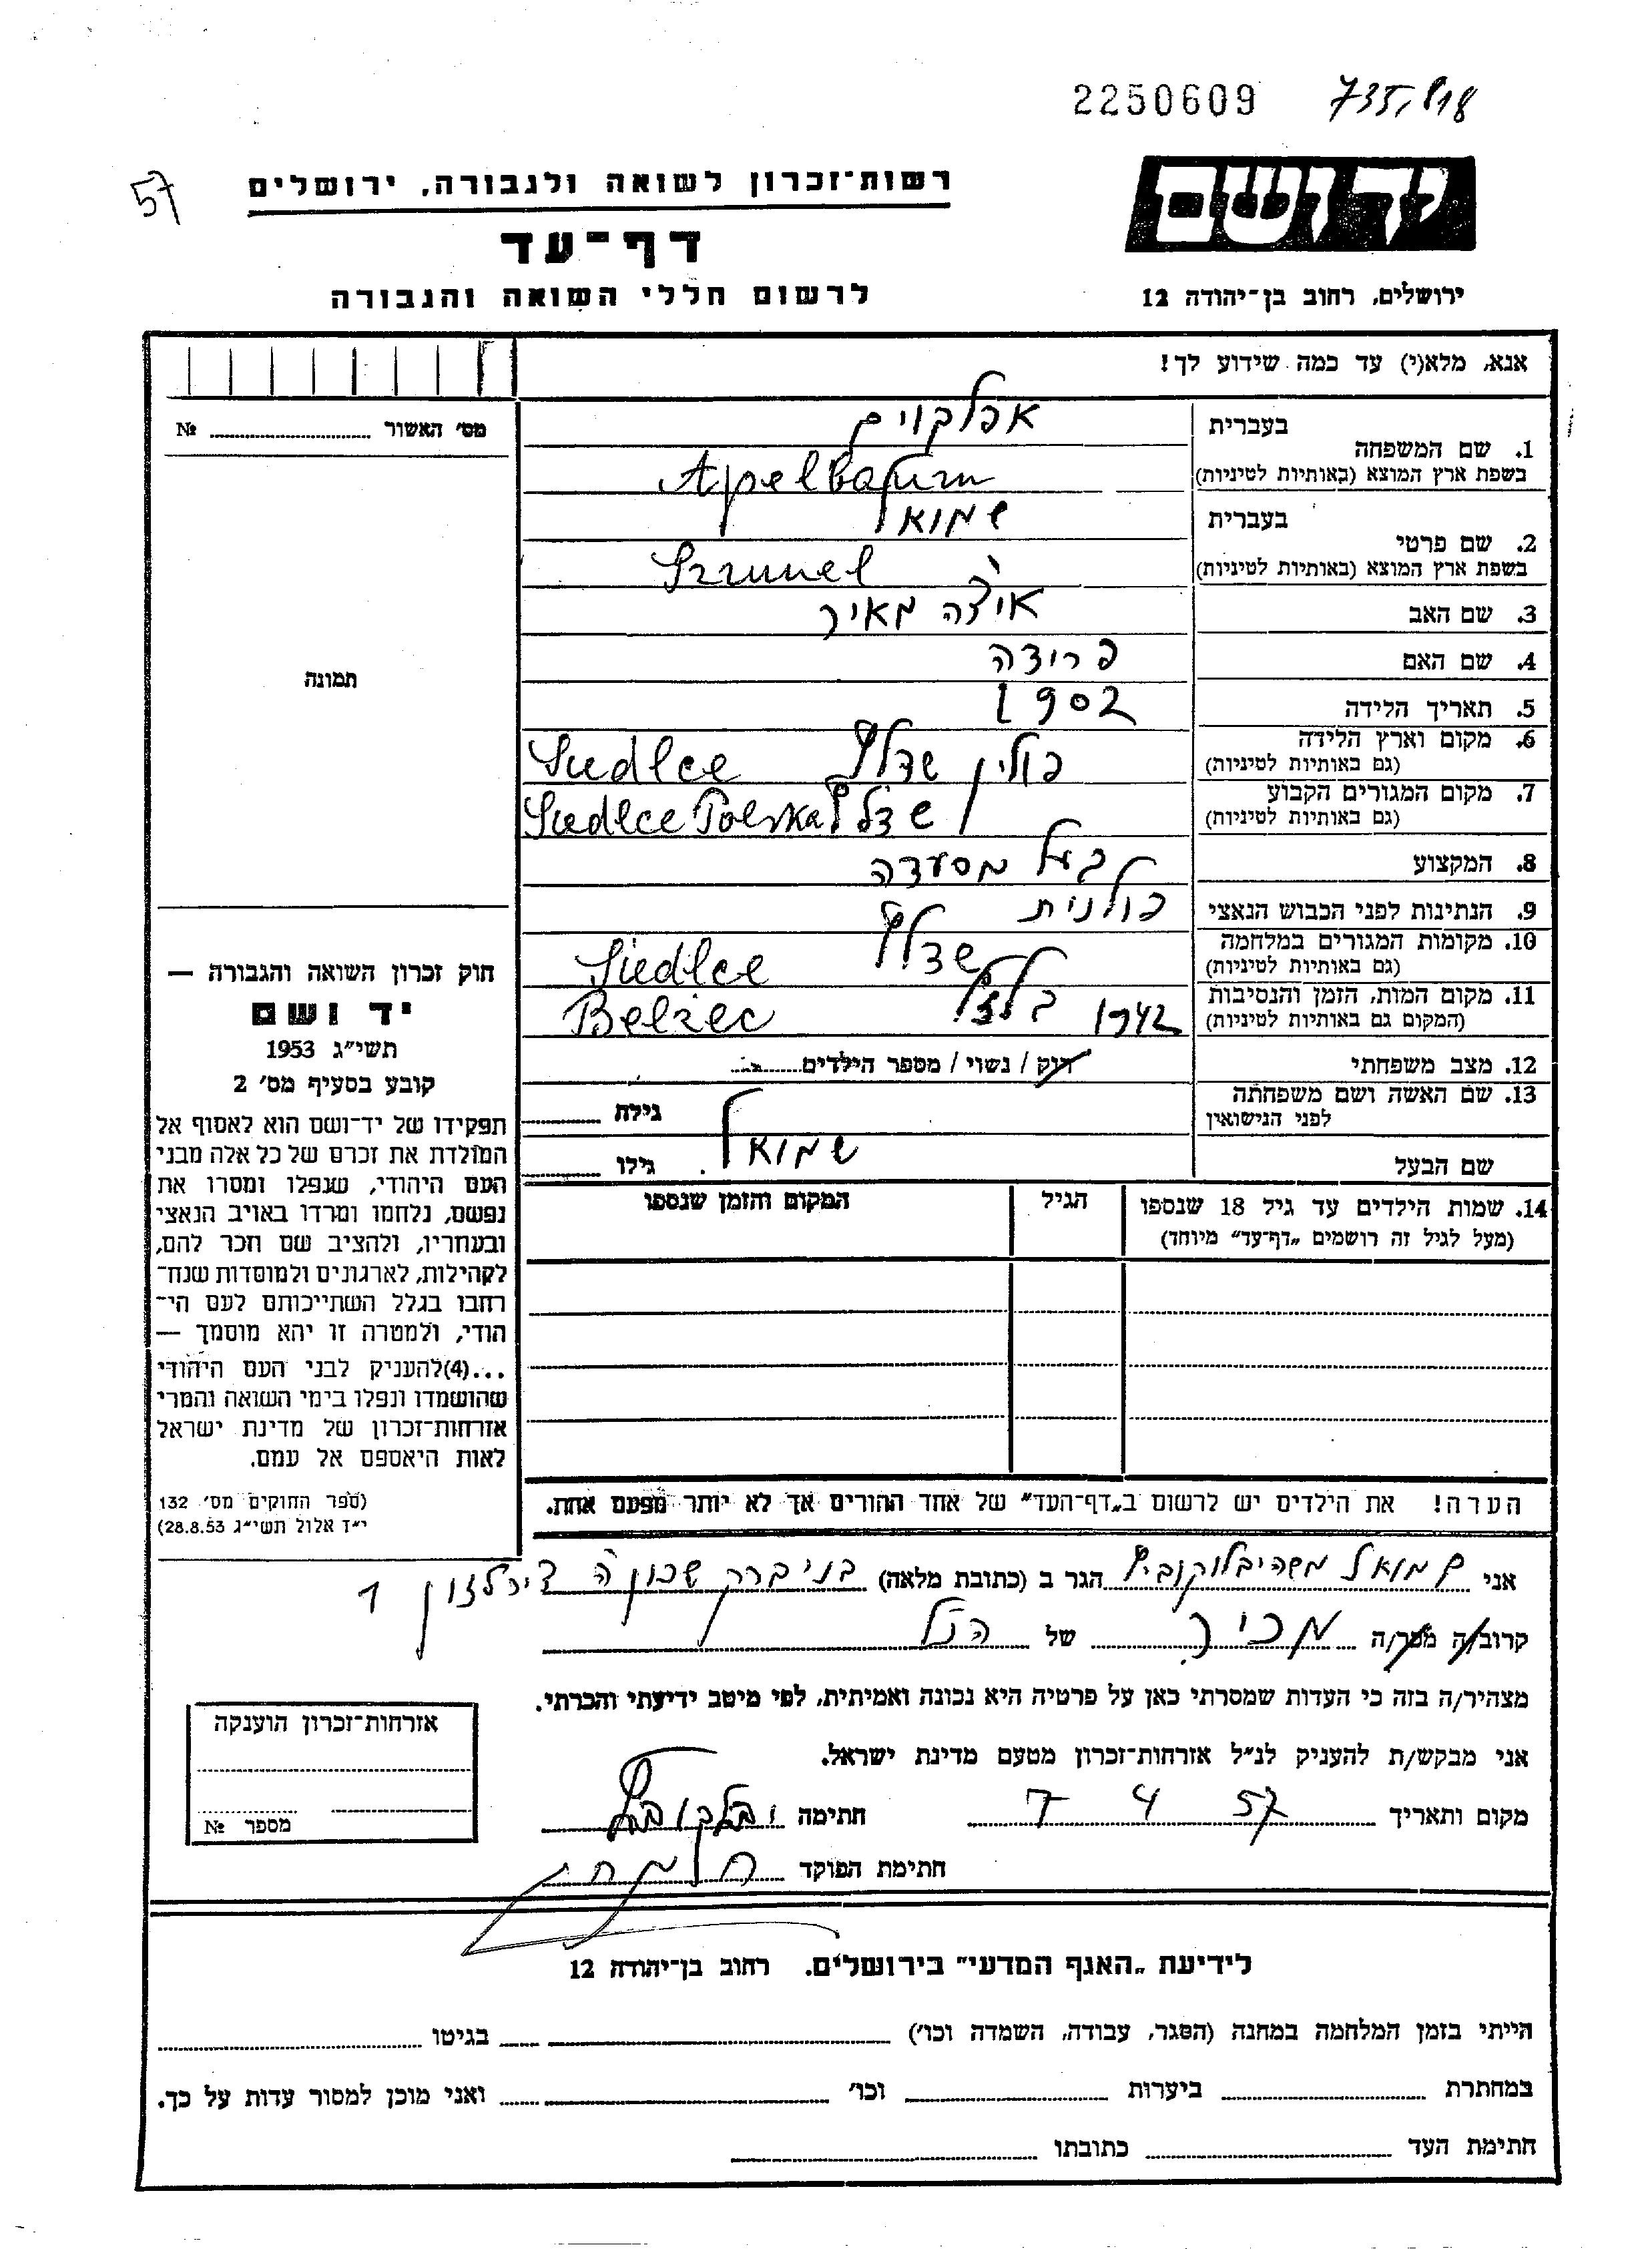 2250609 735,818
57
רשות־זכרון לשואה ולגבורה, ירושלים
יד ושם
דף־עד
לרשום חללי השואה והגבורה
ירושלים, רחוב בן־יהודה 12
אנא, מלא(י) עד כמה שידוע לך!
מס׳ האשור №
תמונה
1. שם המשפחה
בעברית אפלבוים
בשפת ארץ המוצא (באותיות לטיניות) Apelbaum
2. שם פרטי
בעברית שמואל
בשפת ארץ המוצא (באותיות לטיניות) Szmuel
3. שם האב איצה מאיר
4. שם האם פרידה
5. תאריך הלידה 1902
6. מקום וארץ הלידה (גם באותיות לטיניות) פולין שדלץ Siedlce
7. מקום המגורים הקבוע (גם באותיות לטיניות) שדלץ Siedlce Polska
8. המקצוע בעל מסעדה
9. הנתינות לפני הכבוש הנאצי פולנית
10. מקומות המגורים במלחמה (גם באותיות לטיניות) שדלץ Siedlce
11. מקום המות, הזמן והנסיבות (המקום גם באותיות לטיניות) 1942 בלזץ Belzec
12. מצב משפחתי רוק / נשוי / מספר הילדים
13. שם האשה ושם משפחתה לפני הנישואין גילה
שם הבעל שמואל גילו
14. שמות הילדים עד גיל 18 שנספו
(מעל לגיל זה רושמים „דף־עד" מיוחד)
הגיל
המקום והזמן שנספו
חוק זכרון השואה והגבורה —
יד ושם
תשי״ג 1953
קובע בסעיף מס׳ 2
תפקידו של יד־ושם הוא לאסוף אל
המולדת את זכרם של כל אלה מבני
העם היהודי, שנפלו ומסרו את
נפשם, נלחמו ומרדו באויב הנאצי
ובעוזריו, ולהציב שם וזכר להם,
לקהילות, לארגונים ולמוסדות שנח־
רבו בגלל השתייכותם לעם הי־
הודי, ולמטרה זו יהא מוסמך —
...(4)להעניק לבני העם היהודי
שהושמדו ונפלו בימי השואה והמרי
אזרחות־זכרון של מדינת ישראל
לאות היאספם אל עמם.
(ספר החוקים מס׳ 132
י״ז אלול תשי״ג 28.8.53)
הערה! את הילדים יש לרשום ב„דף־העד" של אחד ההורים אך לא יותר מפעם אחת.
אני שמואל משה הגר ב (כתובת מלאה) בני ברק שכון ה 1
קרוב/ה מכר/ה מכיר של הנ״ל
מצהיר/ה בזה כי העדות שמסרתי כאן על פרטיה היא נכונה ואמיתית, לפי מיטב ידיעתי והכרתי.
אני מבקש/ת להעניק לנ״ל אזרחות־זכרון מטעם מדינת ישראל.
מקום ותאריך 7 4 57 חתימה
חתימת הפוקד
אזרחות־זכרון הוענקה
מספר №
לידיעת „האגף המדעי" בירושלים. רחוב בן־יהודה 12
הייתי בזמן המלחמה במחנה (הסגר, עבודה, השמדה וכו׳) בגיטו
במחתרת ביערות וכו׳ ואני מוכן למסור עדות על כך.
חתימת העד כתובתו